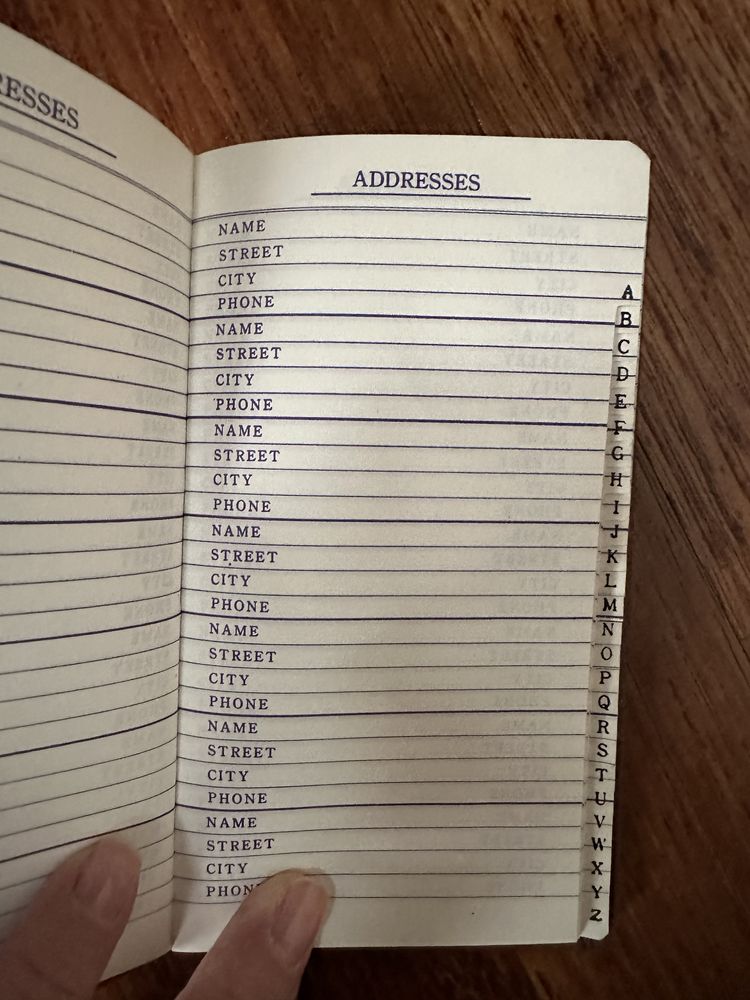 RESSES
ADDRESSES
NAME
STREET
CITY
PHONE
NAME
STREET
CITY
PHONE
NAME
STREET
CITY
PHONE
NAME
STREET
CITY
PHONE
NAME
STREET
CITY
PHONE
NAME
STREET
CITY
PHONE
NAME
STREET
CITY
PHON
A
B
C
D
E
F
G
H
I
J
K
L
M
N
O
P
Q
R
S
T
U
V
W
X
Y
Z